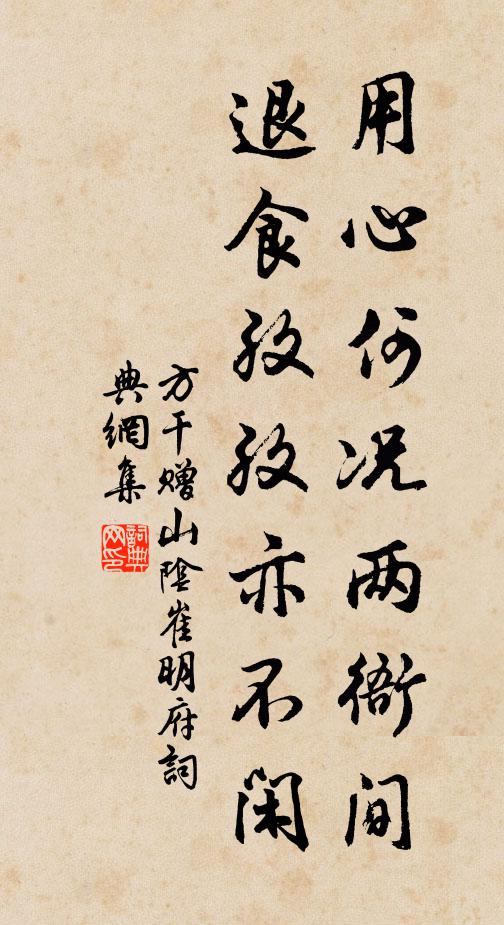 用心何况两衙间
退食孜孜亦不闲
方干赠山陰崔明府詞
典網集
詞典網印